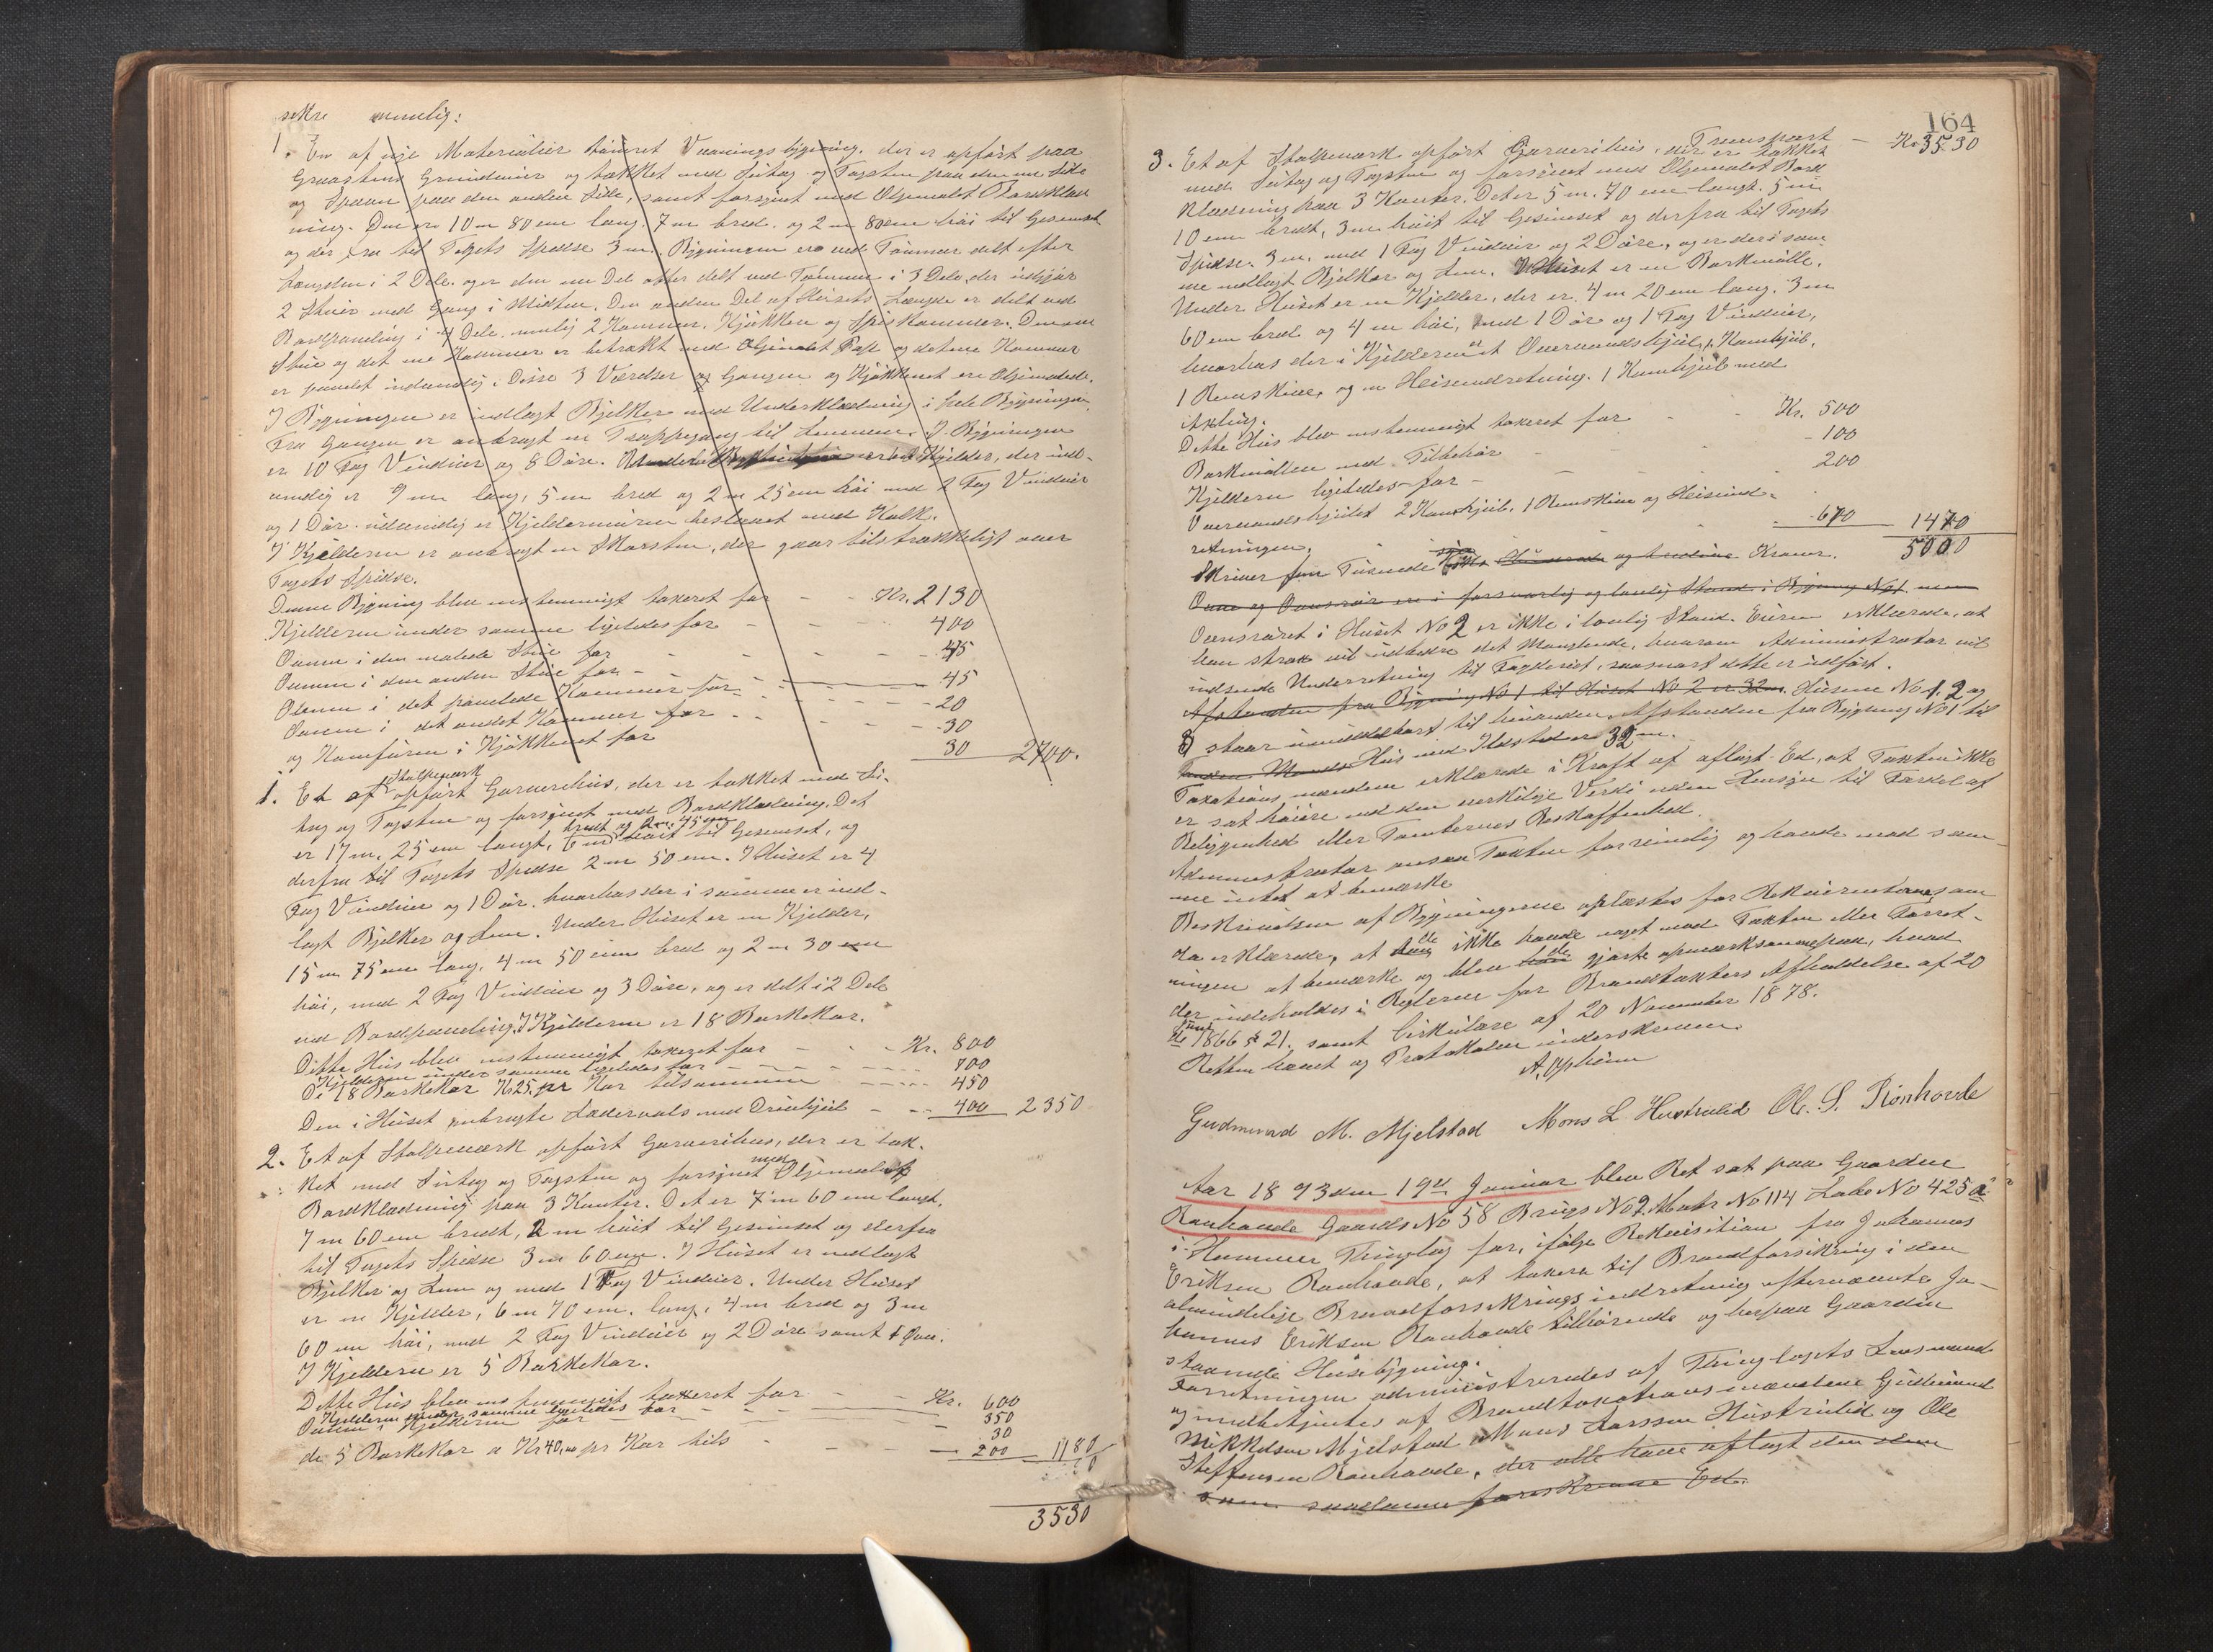 sikre nemlig:
1. En af nye Materialier tømret Vaaningsbygning, der er opført paa
Graastens Grundmur og tækket med Sutag og Tagsten paa den ene Side
og Spaan paa den anden Side, samt forsynet med Oljemalet Bordklæd
ning. Den er 10 m 80 cm lang, 7 m bred, og 2 m 80 cm høi til Gesimset
og derfra til Tagets Spidse 3 m. Bygningen er ved Tømmer delt efter
Længden i 2 Dele, og er den ene Del atter delt ved Tømmer i 3 Dele, der udgjør
2 Stuer med Gang i Midten. Den anden Del af Husets Længde er delt ved
Bordpaneling i 4 Dele, nemlig 2 Kammer, Kjøkken og Spiskammer. Den ene
Stue og det ene Kammer er betrækt med Oljemalet Pap og det ene Kammer
er panelet indvendig. Disse 3 Værelser og Gangen og Kjøkkenet ere Oljemalede.
I Bygningen er indlagt Bjelker med Underklædning i hele Bygningen.
Fra Gangen er anbragt en Trappegang til Lemmen. I Bygningen
er 10 Fag Vinduer og 8 Døre. Under Bygningen er en Kjelder, der ind-
vendig er 9 m lang, 5 m bred og 2 m 25 cm høi med 2 Fag Vinduer
og 1 Dør. udvendig er Kjeldermuren beslaaet med Kalk.
I Kjelderen er anbragt en Skorsten, der gaar tilstrækkeligt over
Tagets Spidse.
Denne Bygning blev enstemmigt taxeret for - - Kr. 2130
Kjelderen under samme ligeledes for - - - 400
Ovnen i den malede Stue for - - - 45
Ovnen i den anden Stue for - - - 45
Ovnen i det panelede Kammer for - - - 20
Ovnen i det andet Kammer for - - - 30
og Komfuren i Kjøkkenet for 30 2700.
1. Et af Stolpeværk opført Garverihus, der er tækket med Su-
tag og Tagsten og forsynet med Bordklædning. Det
er 17 m. 25 cm langt, 6 m bredt og 2 m. 45 cm høit til Gesimset, og
derfra til Tagets Spidse 2 m 50 cm. I Huset er 4
Fag Vinduer og 1 Dør, hvorhos der i samme er ind-
lagt Bjelker og Lem. Under Huset er en Kjelder,
15 m 75 cm lang, 4 m 50 cm bred og 2 m 30 cm
høi, med 2 Fag Vinduer og 3 Døre, og er delt i 2 Dele
ved Bordpaneling. I Kjelderne er 18 Barkekar.
Dette Hus blev enstemmigt taxeret for - - - Kr. 800
Kjelderen under samme ligeledes for - - - 700
De 18 Barkekar Kr 25, pr Kar tilsammen - - - 450
Den i Huset anbragte Lædervals med Drivhjul - - - 400 2350
2. Et af Stolpeværk opført Garverihus, der er tæk-
ket med Sutag og Tagsten og forsynet med Oljemalet
Bordklædning paa 3 Kanter. Det er 7 m 60 cm langt,
7 m 60 cm bredt, 2 m høit til Gesimset og derfra
til Tagets Spidse 3 m 60 cm. I Huset er indlagt
Bjelker og Lem og med 1 Fag Vinduer. Under Huset
er en Kjelder, 6 m 70 cm. lang, 4 m bred og 3 m
60 cm høi, med 2 Fag Vinduer og 2 Døre samt 1 Ovn.
I Kjelderen er 5 Barkekar.
Dette Hus blev enstemmigt taxeret for - - Kr. 600
Kjelderen under samme ligeledes for - - 350
Ovnen i Kjelderen for - - 30
de 5 Barkekar a Kr 40,00 pr Kar tils - - - 200 1180
3530
164
Transport - Kr 3530
3. Et af Stolpeværk opført Garverihus, der er tækket
med Sutag og Tagsten og forsynet med Oljemalet Bord
klædning paa 3 Kanter. Det er 5 m. 70 cm langt. 5 m
10 cm bredt, 3 m høit til Gesimset og derfra til Tagets
Spidse. 3 m. med 1 Fag Vinduer og 2 Døre, og er der i sam
me indlagt Bjelker og Lem. I Huset er en Barkmølle.
Under Huset er en Kjelder, der er 4 m 20 cm lang, 3 m
60 cm bred og 4 m høi, med 1 Dør og 1 Fag Vinduer,
hvorhos der i Kjelderen er et Overvandshjul, 1 Kamhjul,
1 Remskive, og en Heiseindretning. 1 Kamhjul med
Axling.
Dette Hus blev enstemmigt taxeret for - - Kr. 500
Barkmøllen med Tilbehør - - - 100
Kjelderen ligeledes for - - - 200
Overvandshjulet 2 Kamhjul, 1 Remskive og Heiseind-
retningen. - - - 670 1470
5000
Skriver fem Tusinde Kroner.
Ovne og Ovnsrør er i forsvarlig og lovlig Stand i Bygning No 1 men
Ovnsrøret i Huset No 2 er ikke i lovlig Stand. Eieren erklærede, at
han strax vil udbedre det Manglende, hvorom Administrator vil
indsende Underretning til Fogderiet, saasnart dette er udført.
Afstanden fra Bygning No 1 til Huset No 2 er 32 m. Husene No 1. 2 og
3 staar umiddelbart til hinanden. Afstanden fra Bygning No 1 til
Hus med Ildsted er 32 m.
Taxationsmændene erklærede i Kraft af aflagt Ed, at Taxten ikke
er sat høiere end den virkelige Værdi uden Hensyn til Fordel af
Beliggenhed eller Tomternes Beskaffenhed.
Administrator ansaa Taxten for rimelig og havde mod sam-
me intet at bemærke
Beskrivelsen af Bygningerne oplæstes for Rekvirenterne, som
da erklærede, at de ikke havde noget mod Taxten eller Forret-
ningen at bemærke og blev de gjorte opmærksomme paa, hvad
der indeholdes i Reglerne for Brandtaxters Afholdelse af 20
de Juni 1866 § 21. samt Cirkulære af 20 November 1878.
Retten hævet og Protokollen underskreven.
A. Opheim
Gudmund M. Mjelstad Mons L. Hustrulid Ol. S. Rönhovde
Aar 1893 den 19de Januar blev Ret sat paa Gaarden
Rønhovde Gaards No 58 Brugs No 2 Matr No 114 Løbe No 425 a
i Hammer Thinglag for, ifølge Rekvisition fra Johannes
Eriksen Rønhovde, at taxere til Brandforsikring i den
almindelige Brandforsikringsindretning efternævnte Jo-
hannes Eriksen Rønhovde tilhørende og herpaa Gaarden
staaende Husebygning.
Forretningen administreredes af Thinglagets Lensmand
og medbetjentes af Brandtaxationsmændene Gudmund
Mikkelsen Mjelstad Mons Larssen Hustrulid og Ole
Steffensen Rønhovde, der alle have aflagt den dem
som saadanne foreskrevne Ed.